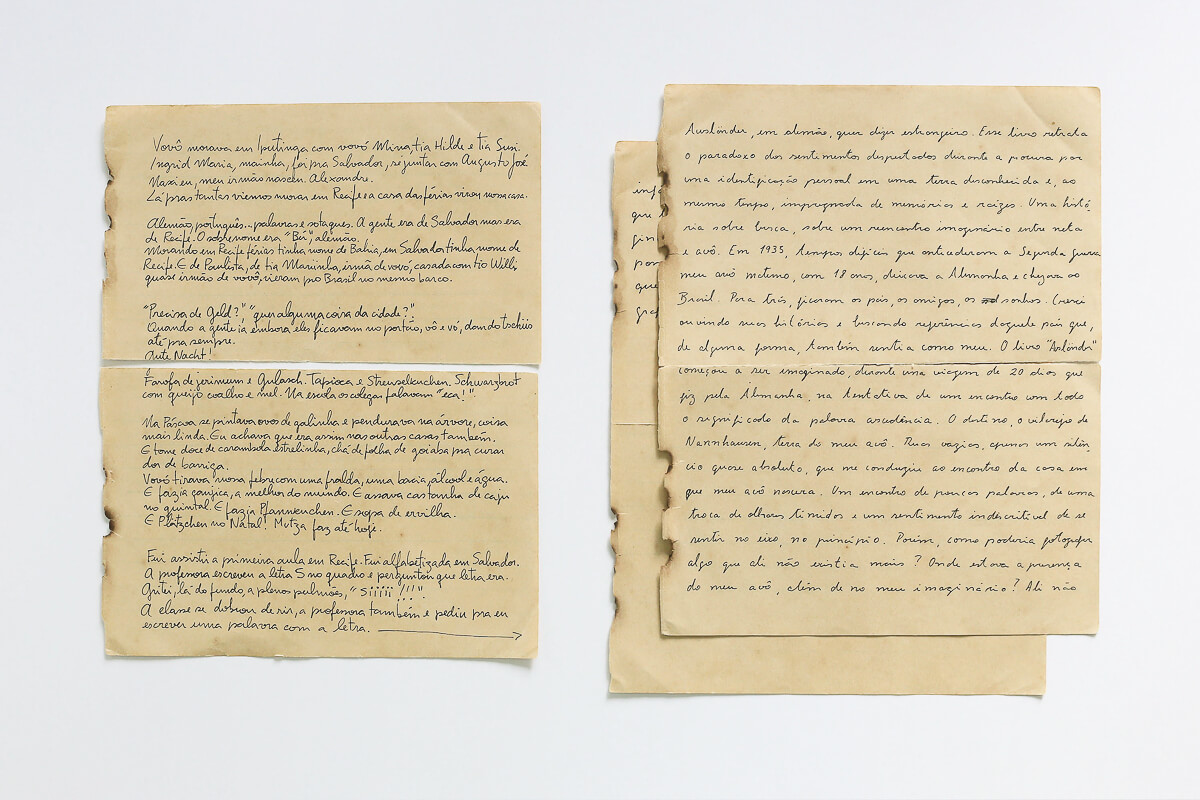 Vovô morava em Iputinga com vovó Mina, tia Hilde e tia Susi.
Ingrid Maria, mainha, foi pra Salvador, se juntar com Augusto José.
Nasci eu, meu irmão nasceu. Alexandre.
Lá pras tantas viemos morar em Recife e a casa das férias virou nossa casa.
Alemão, português... palavras e sotaques. A gente era de Salvador mas era
de Recife. O sobrenome era "Bei", alemão.
Morando em Recife férias tinha nome de Bahia, em Salvador tinha nome de
Recife. E de Paulista, de tia Mariinha, irmã de vovó, casada com tio Willi
quase irmão de vovô, vieram pro Brasil no mesmo barco.
"Precisa de Geld?", "quer alguma coisa da cidade?"
Quando a gente ia embora eles ficavam no portão, vô e vó, dando tschüss
até pra sempre.
Gute Nacht!
Farofa de jerimum e Gulasch. Tapioca e Streuselkuchen. Schwarzbrot
com queijo coalho e mel. Na escola os colegas falavam "eca!"
Na Páscoa se pintava ovos de galinha e pendurava na árvore, coisa
mais linda. Eu achava que era assim nas outras casas também.
E tome doce de carambola estrelinha, chá de folha de goiaba pra curar
dor de barriga.
Vovó tirava nossa febre com uma fralda, uma bacia, álcool e água.
E fazia canjica, a melhor do mundo. E assava castanha de caju
no quintal. E fazia Pfannkuchen. E sopa de ervilha.
E Plätzchen no Natal! Mutza faz até hoje.
Fui assistir a primeira aula em Recife. Fui alfabetizada em Salvador.
A professora escreveu a letra S no quadro e perguntou que letra era.
Gritei, lá do fundo, a plenos pulmões, "Siiiii!!!"
A classe se dobrou de rir, a professora também e pediu pra eu
escrever uma palavra com a letra.
infâ
que
gin
por
que
gra
Ausländer, em alemão, quer dizer estrangeiro. Esse livro retrata
o paradoxo dos sentimentos despertados durante a procura por
uma identificação pessoal em uma terra desconhecida e, ao
mesmo tempo, impregnada de memórias e raízes. Uma histó
ria sobre busca, sobre um reencontro imaginário entre neta
e avô. Em 1935, tempos difíceis que antecederam a Segunda Guerra
meu avô materno, com 18 anos, deixava a Alemanha e chegava ao
Brasil. Para trás, ficaram os pais, os amigos, os sonhos. Cresci
ouvindo suas histórias e buscando referências daquele país que,
de alguma forma, também sentia como meu. O livro "Ausländer"
começou a ser imaginado, durante uma viagem de 20 dias que
fiz pela Alemanha, na tentativa de um encontro com todo
o significado da palavra ascendência. O destino, o vilarejo de
Nannhausen, terra do meu avô. Ruas vazias, apenas um silên
cio quase absoluto, que me conduziu ao encontro da casa em
que meu avô nascera. Um encontro de poucas palavras, de uma
troca de olhares tímidos e um sentimento indescritível de se
sentir no eixo, no princípio. Porém, como poderia fotografar
algo que ali não existia mais? Onde estava a presença
do meu avô, além de no meu imaginário? Ali não